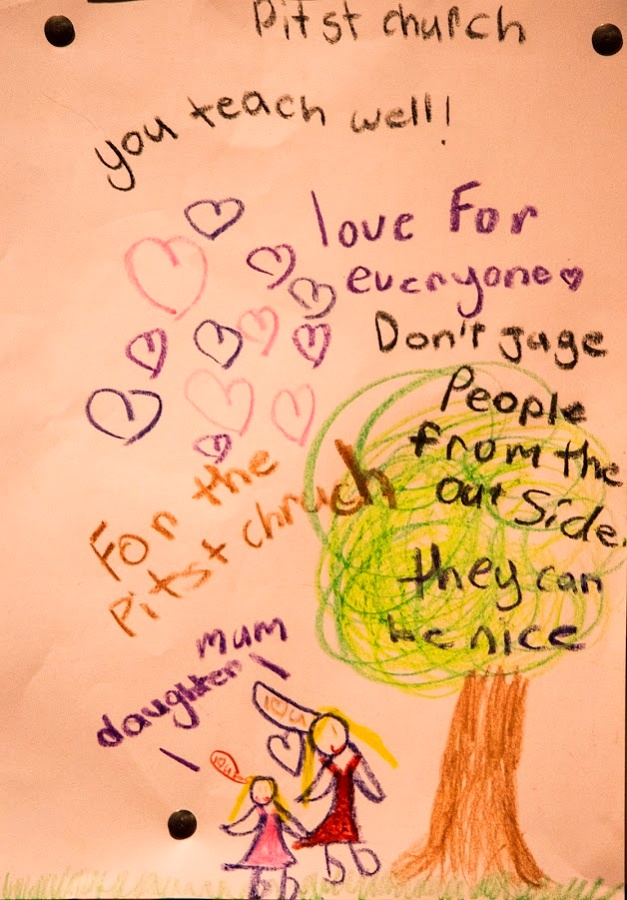 Pitst church
you teach well!
love For
everyone
Don't jage
People
from the
out Side.
they can
be nice
For the
Pitst chruch
mum
daughter
I♡u